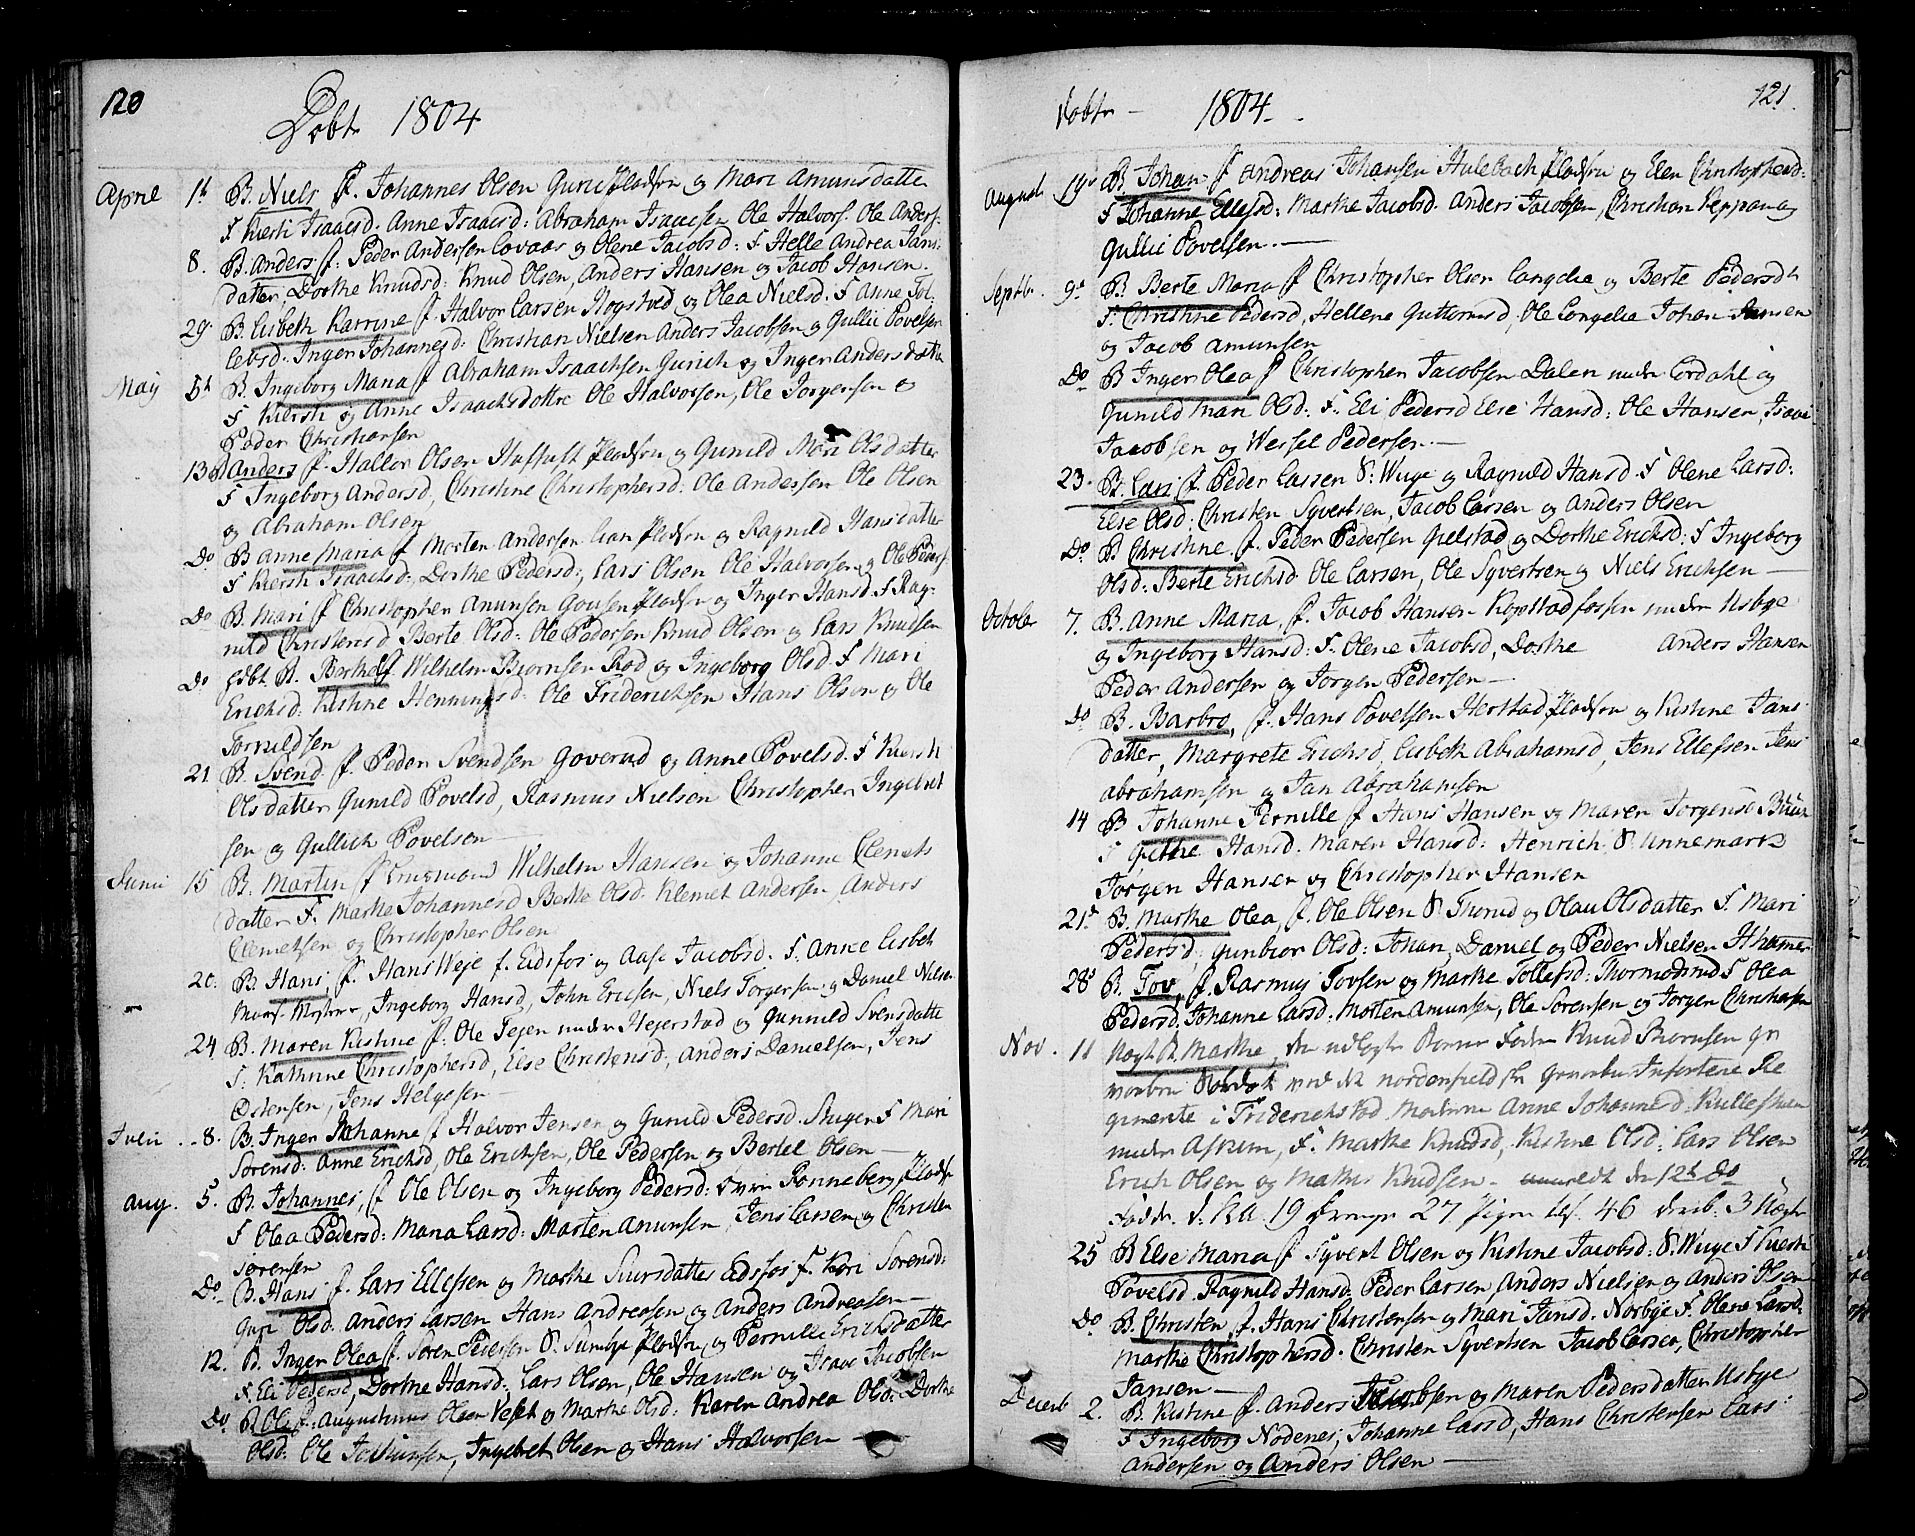 120
Døbte 1804
April 1t B. Niels f. Johannes Olsen Gurie Pladsen og Mari Amunsdatter
F Kiersti Isaacsd. Anne Isaacsd: Abraham Isaacsen Ole Halvors. Ole Anders.
8. B. Anders f. Peder Andersen Lovaas og Olene Jacobsd: F Helle Andrea Jans
datter, Dorthe Knudsd: Knud Olsen, Anders Hansen og Jacob Hansen.
29. B. Lisbeth Karrine f Halvor Larsen Hogstad og Olea Nielsd. F Anne Tol-
lebsd. Inger Johannesd: Christian Nielsen Anders Jacobsen og Gullic Povelsen
May 5t B. Ingeborg Maria f Abraham Isaachsen Gurich og Inger Andersdatter
F Kiersti og Anne Isaachsdøttre Ole Halvorsen, Ole Jorgensen og
Peder Christiansen
13d Anders f. Hallor Olsen Pladsen og Gunild Mari Olsdatter
F Ingeborg Andersd, Christine Christophersd: Ole Andersen Ole Olsen
og Abraham Olsen
Do B Anne Maria f Morten Andersen Lian Pladsen og Ragnild Hansdatter
F Kiersti Isaachsd: Dorthe Pedersd:, Lars Olsen Ole Halvorsen og Ole Peders
Do B. Mari f Christopher Amunsen Pladsen og Inger Hansd. F Rag-
nild Christensd Berte Olsd: Ole Pedersen Knud Olsen og Lars Knutsen
Do B. Berthe f Wilhelm Biørnsen Rød og Ingeborg Olsd. F Mari
Ericksd: Kistine Hennings d: Ole Friderichsen Hans Olsen og Ole
Tornildsen
21. B. Svend f. Peder Svendsen Goverud og Anne Povelsd. F Kiersti
Olsdatter Gunild Povelsd, Rasmus Nielsen Christopher Ingebret
sen og Gullich Povelsen
Junii 15 B. Martin f Wilhelm Hansen og Johanne Clemets
datter F. Marthe Johannesd Berthe Olsd. Klemet Andersen, Anders
Clemetsen og Christopher Olsen
20. B. Hans, f. Hans Weje f. Eidsfos og Aase Jacobsd. F. Anne Lisbet
Ingeborg Hansd, John Ericsen, Niels Torgersen og Daniel Nielsen
24 B. Maren Kistine f: Ole Tejen under Hejerstad og Gunnild Svensdatter
F. Kathrine Christophersd, Else Christensd: Anders Danielsen, Jens
Østensen, Jens Helgesen
Julii 8. B. Inger Johanne f Halvor Jensen og Gunild Pedersd. F Mari
Sorensd: Anne Ericksd, Ole Erichsen, Ole Pedersen og Bertel Olsen
Aug. 5. B. Johannes, f Ole Olsen og Ingeborg Pedersd: Ronneberg Pladsen
F Olea Pedersd: Maria Larsd: Morten Amunsen, Jens Larsen og Christen
Sorensen
Do B. Hans f. Lars Ellefsen og Marthe Siursdatter Edsfos F. Kari Sorensd:
Guri Olsd. Anders Larsen Hans Andreasen og Anders Andreasen
12. B. Inger Olea f. Soren Pedersen S. Sundbye Pladsen og Pernille Ericksdatter
F. Eli Pedersd, Dorthe Hansd:, Lars Olsen, Ole Hansen og Isaac Jacobsen
Do B. Ole f. Augustinus Olsen og Marthe Olsd: Karen Andrea Olsd: Dorthe
Olsd: Ole Ingebret Olsen og Hans Halvorsen
121.
Døbte 1804
August 19d B Johan f Andreas Johansen Hulebach Pladsen og Elen Christophersd:
F Johanne Ellefsd: Marthe Jacobsd. Anders Jacobsen, Christian og
Gullic Povelsen.
Septbr. 9d B. Berte Maria f Christopher Olsen Langelia og Berte Pedersdt
F. Christine Pedersd, Hellene Guttormsd, Ole Longelia Johan Hansen
og Jacob Amunsen
Do B Inger Olea f Christopher Jacobsen Dalen under Lordahl og
Gunild Mari Olsd: F. Eli Pedersd Else Hansd: Ole Hansen, Isaac
Jacobsen og Wessel Pedersen.
23. B. Lars f Peder Larsen S. Wuge og Ragnild Hansd. F Olene Larsd:
Else Olsd: Christen Syvertsen, Jacob Larsen og Anders Olsen
Do B. Christine f. Peder Pedersen Gielstad og Dorthe Ericksd: F Ingeborg
Olsd: Berte Ericksd. Ole Larsen, Ole Syvertsen og Niels Erichsen
Octobr 7. B. Anne Maria f. Jacob Hansen Kopstadfossen under Usbye
og Ingeborg Hansd: F. Olene Jacobsd, Dorthe Anders Hansen
Peder Andersen og Jorgen Pedersen
Do B. Barbro, f. Hans Povelsen Herstad Pladsen og Kistine Jans
datter, Margrete Ericksd Lisbeth Abrahamsd, Jens Ellefsen Jens
Abrahamsen og Jan Abrahamsen
14 B Johanne Pernille f Hans Hansen og Maren Jorgensd
F Gitthe Hansd. Maren Hansd: Henrich S. Unnemark
Jørgen Hansen og Christopher Hansen
21d B. Marthe Olea, f. Ole Olsen S. Thorud og Olau Olsdatter F. Mari
Pedersd, Gunbior Olsd: Johan, Daniel og Peder Nielsen
28d B. Tov, f. Rasmus Tovsen og Marthe Tollefsd: Thormodsrud F Olea
Pedersd. Johanne Larsd: Morten Amunsen, Ole Sorensen og Jorgen Christiansen
Nov. 11 B. Marthe, den udlagte Barne Fader Knud
ved det nordenfieldske Infanterie Re
gimente i Friderichstad Moderen Anne Johannesd:
under Askum, F. Marthe Knudsd, Kistine Olsd: Lars Olsen
Erich Olsen og Mathis Knudsen. den 12t Do
19 27 46 3
25 B Else Maria f Syvert Olsen og Kistine Jacobsd: S. Wuge F Kiersti
Povelsd. Ragnild Hansd: Peder Larsen Anders Nielsen og Anders Olsen
Do B. Christen, f. Hans Christensen og Mari Jansd. Norbye F. Olene Larsd.
Marthe Christophersd. Christen Syvertsen Jacob Larsen, Christopher
Jansen
Decemb 2. B. Kistine f. Anders Jacobsen og Maren Pedersdatter Usbye
F Ingeborg Nodenes, Johanne Larsd, Hans Christensen Lars
Andersen og Anders Olsen